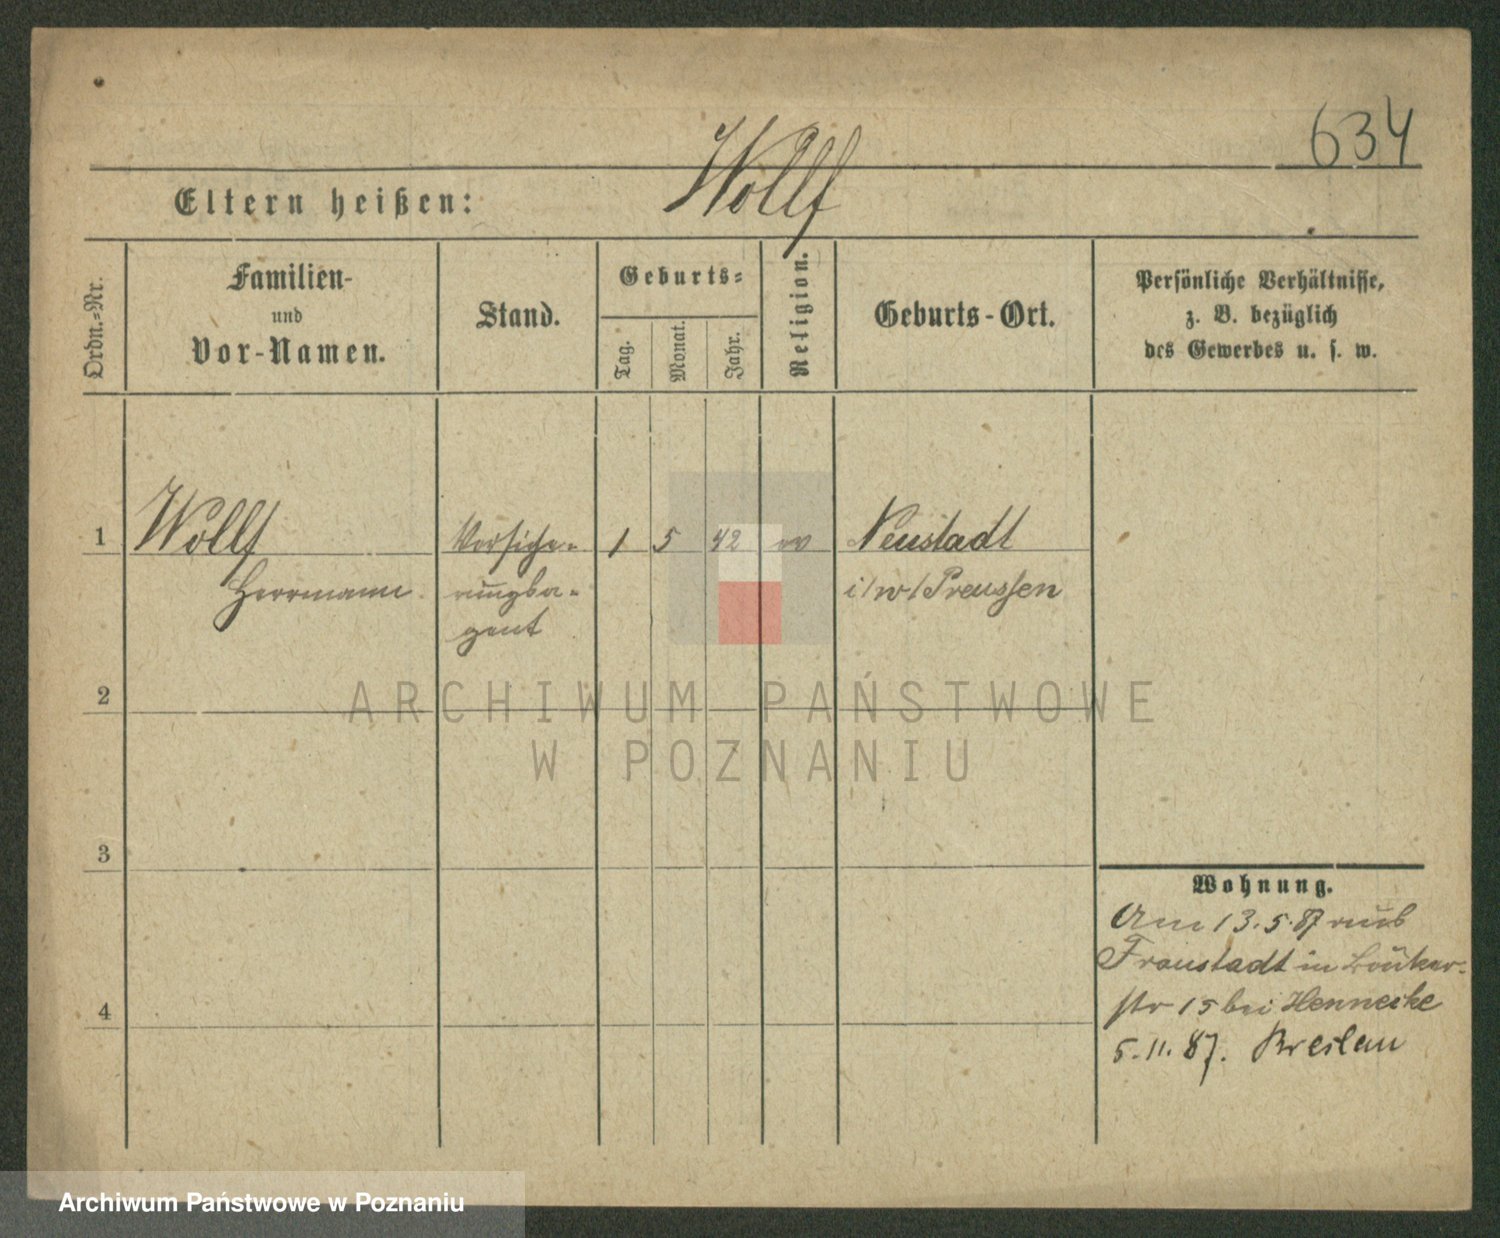 634
Wollf
Eltern heißen:
Ordn.-Nr.
Familien-
und
Vor-Namen.
Stand.
Geburts-
Tag.
Monat.
Jahr.
Religion.
Geburts-Ort.
Persönliche Verhältnisse,
z. B. bezüglich
des Gewerbes u. s. w.
1 Wollf Versiche- 1 5 42 ev Neustadt
Herrmann rungsa- i/w/Preussen
gent
2
ARCHIWUM PAŃSTWOWE
W POZNANIU
3
Wohnung.
Am 13.5.87 aus
Fraustadt in
str 15 bei Hennecke
4
5.11.87. Breslau
Archiwum Państwowe w Poznaniu